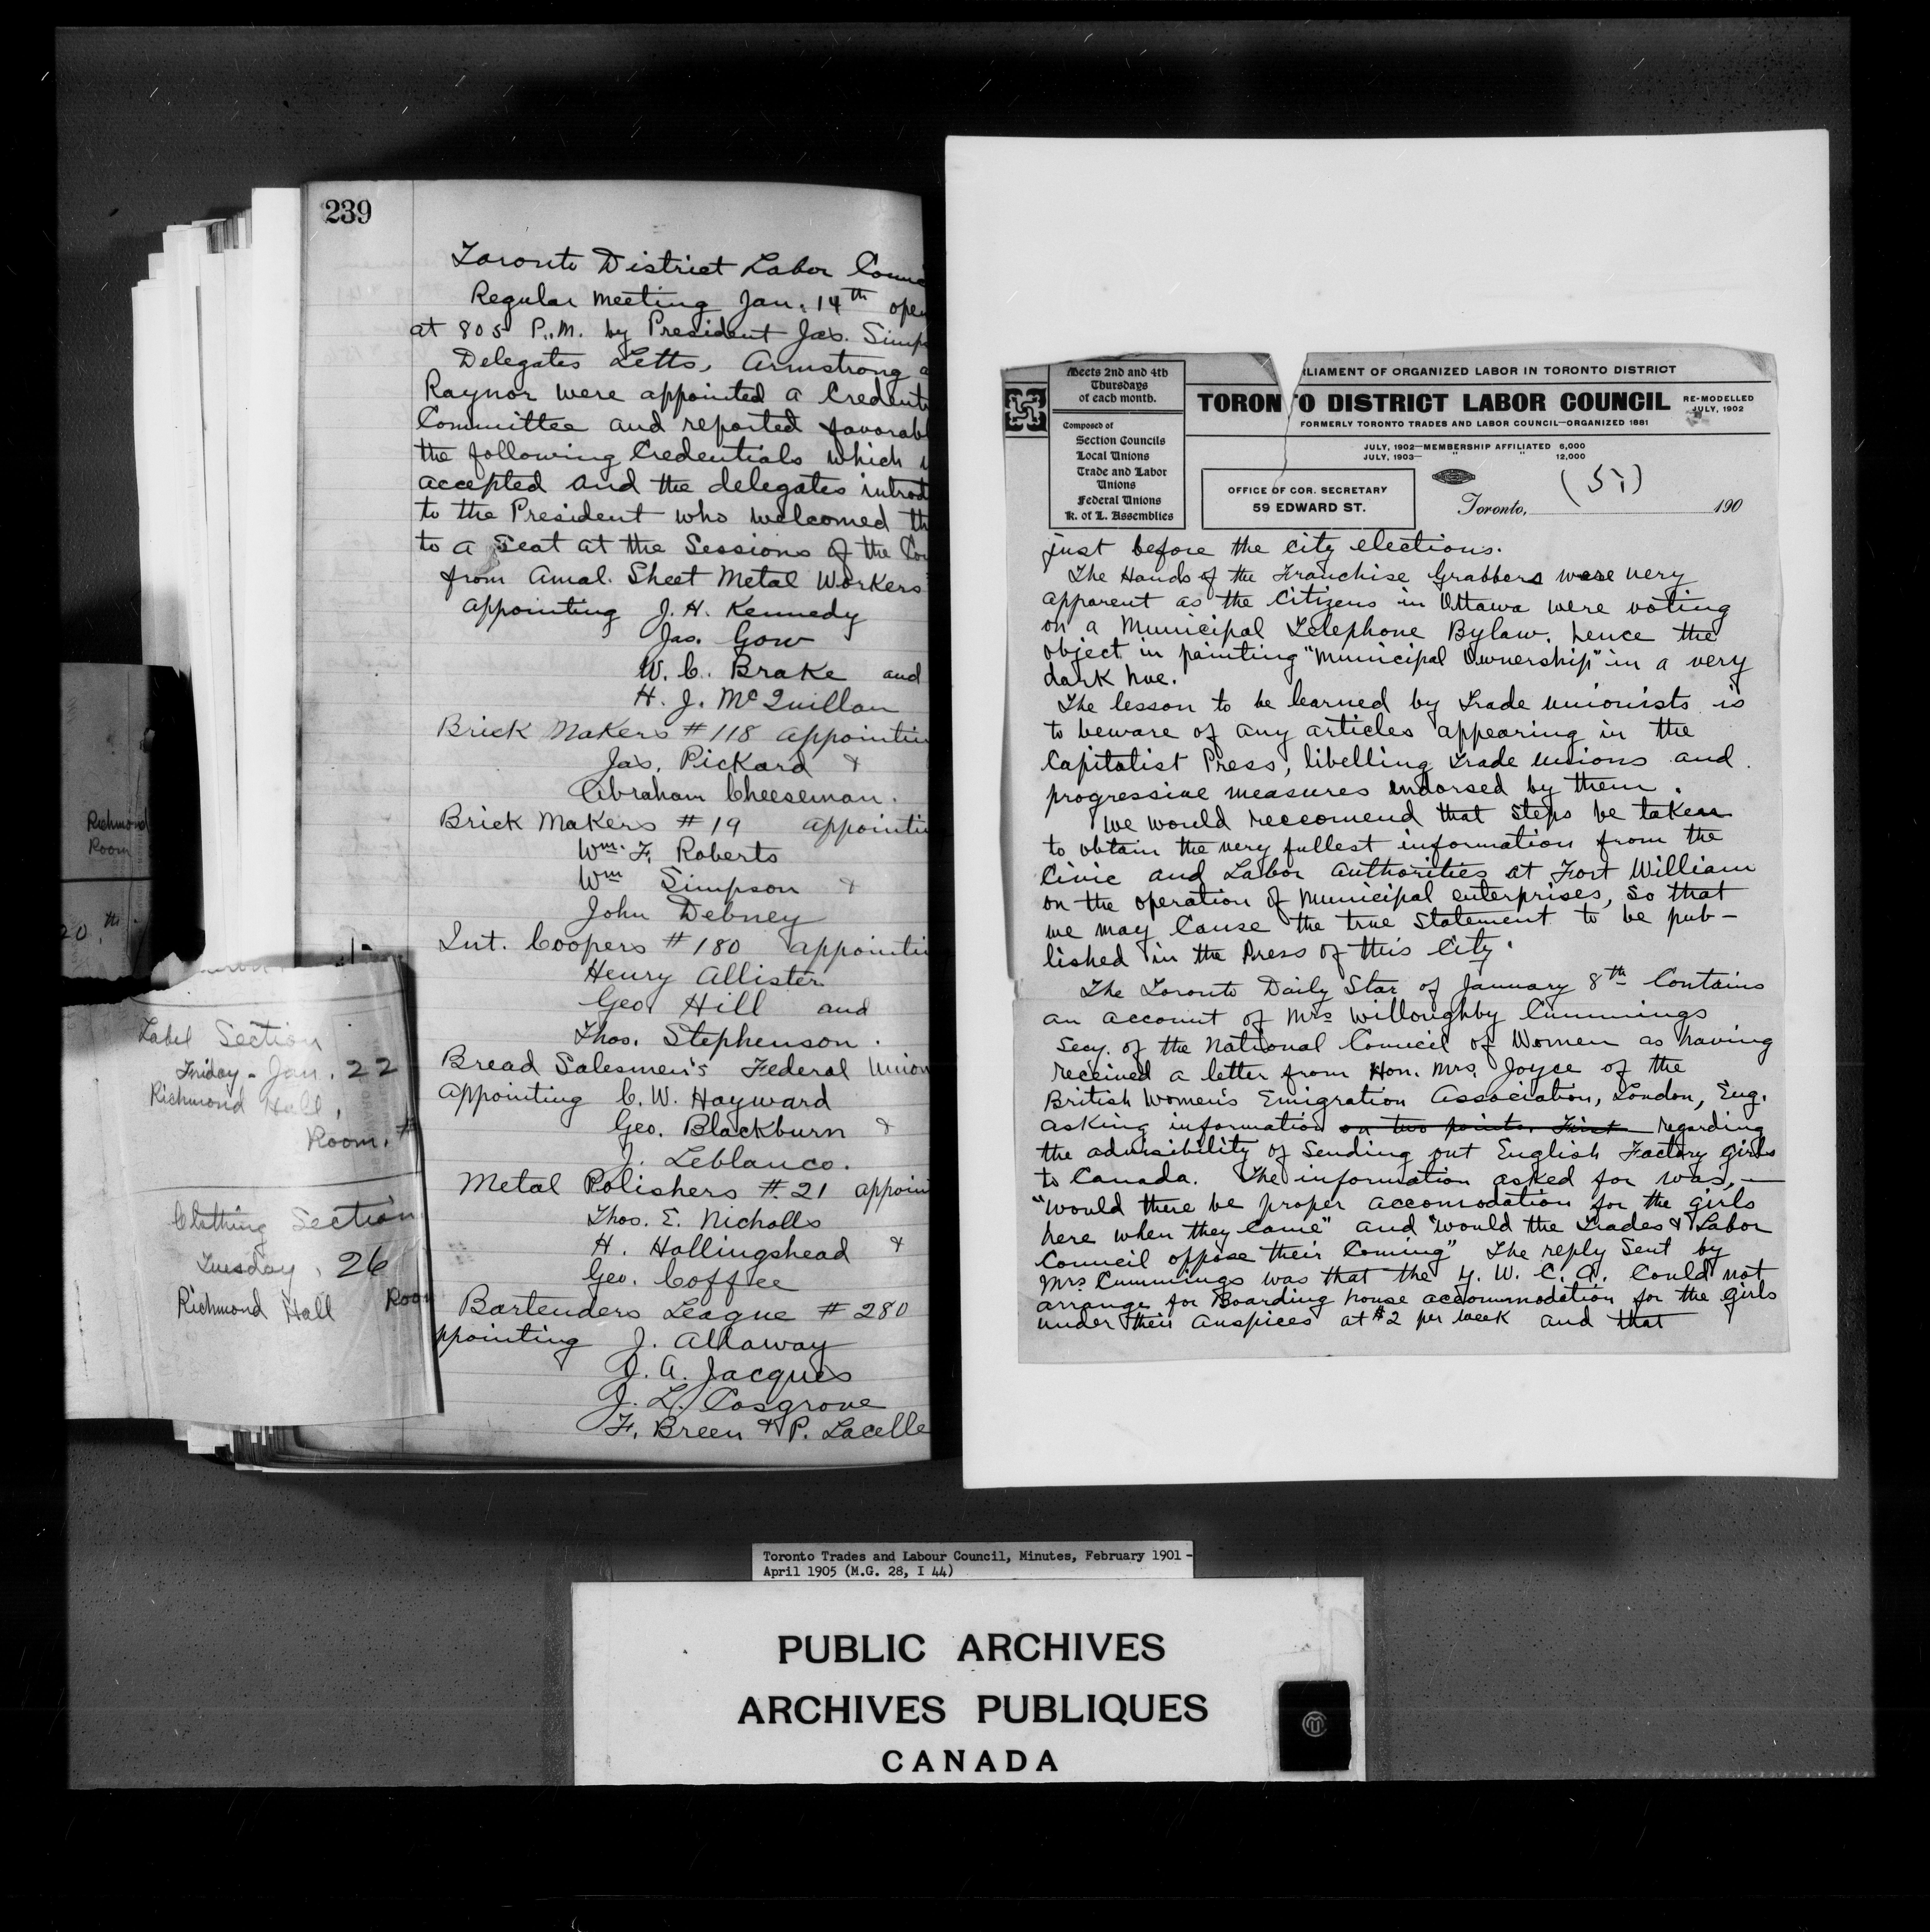 239
Toronto District Labor Counc
Regular Meeting Jan. 14th open
at 805 P.M. by President Jas. Simps
Delegates Letts, Armstrong a
Raynor were appointed a Credenti
Committee and reported favorabl
the following Credentials which w
accepted and the delegates introd
to the President who welcomed th
to a Seat at the Sessions of the Cou
from Amal. Sheet Metal Workers
appointing J. H. Kennedy
Jas. Gow
W. C. Brake and
H. J. McQuillan
Brick Makers #118 appointin
Jas. Pickard &
Abraham Cheeseman.
Brick Makers #19 appointin
Wm. F. Roberts
Wm Simpson &
John Debney
Int. Coopers #180 appointin
Henry Allister
Geo Hill and
Thos. Stephenson.
Bread Salesmen's Federal Union
appointing C. W. Hayward
Geo. Blackburn &
J. Leblanco.
Metal Polishers #21 appoin
Thos. E. Nicholls
H. Hollingshead &
Geo. Coffee
Bartenders League #280
ppointing J. Allaway
J. A. Jacques
J. L. Cosgrove
F. Breen & P. Lacelle
Richmond
Room
20.th
Label Section
Friday - Jan. 22
Richmond Hall,
Room. #
Clothing Section
Tuesday, 26
Richmond Hall Room
Meets 2nd and 4th
Thursdays
of each month.
Composed of
Section Councils
Local Unions
Trade and Labor
Unions
Federal Unions
K. of L. Assemblies
LIAMENT OF ORGANIZED LABOR IN TORONTO DISTRICT
TORONTO DISTRICT LABOR COUNCIL
RE-MODELLED
JULY, 1902
FORMERLY TORONTO TRADES AND LABOR COUNCIL—ORGANIZED 1881
JULY, 1902—MEMBERSHIP AFFILIATED 6,000
JULY, 1903— " " 12,000
OFFICE OF COR. SECRETARY
59 EDWARD ST.
Toronto, 190
just before the City elections.
The Hands of the Franchise Grabbers were very
apparent as the Citizens in Ottawa were voting
on a Municipal Telephone Bylaw. hence the
object in painting "Municipal Ownership" in a very
dark hue.
The lesson to be learned by Trade Unionists is
to beware of any articles appearing in the
Capitalist Press, libelling Trade Unions and
progressive measures endorsed by them.
We would reccomend that Steps be taken
to obtain the very fullest information from the
Civic and Labor Authorities at Fort William
on the operation of Municipal enterprises, So that
we may Cause the true Statement to be pub-
lished in the Press of this City.
The Toronto Daily Star of January 8th Contains
an account of Mrs Willoughby Cummings
Secy. of the National Council of Women as having
received a letter from Hon. Mrs. Joyce of the
British Women's Emigration Association, London, Eng.
asking information on two points. First regarding
the advisibility of Sending out English Factory girls
to Canada. The information asked for was, —
"would there be proper accomodation for the girls
here when they Came" and "would the Trades & Labor
Council oppose their Coming" The reply Sent by
Mrs Cummings was that the Y. W. C. A. Could not
arrange for Boarding house accommodation for the girls
under their Auspices at $2 per week and that
Toronto Trades and Labour Council, Minutes, February 1901 -
April 1905 (M.G. 28, I 44)
PUBLIC ARCHIVES
ARCHIVES PUBLIQUES
CANADA